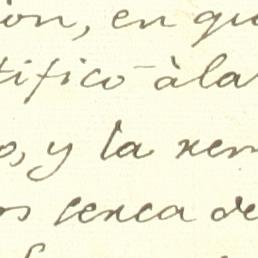 ion, en qu
tificó - à la
o, y la rem
os cerca de